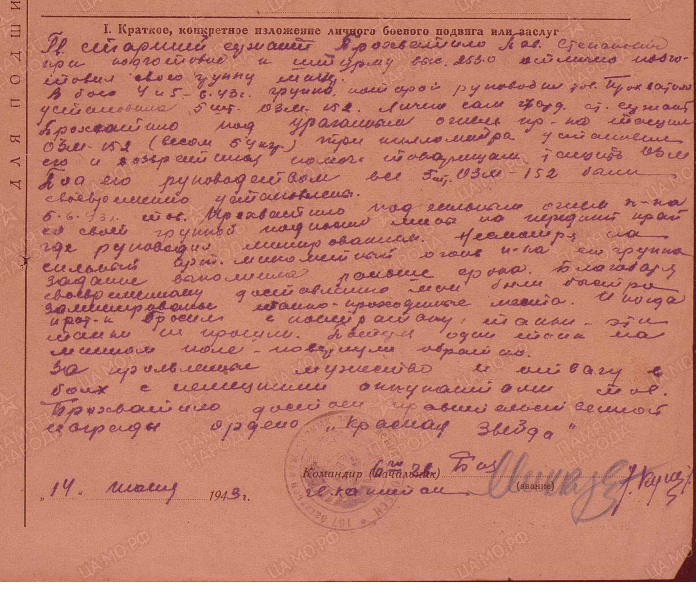 I. Краткое, конкретное изложение личного боевого подвига или заслуг
старший сержант Прохватило Пав. Степанович
при подготовке к штурму выс. 253.0 отлично подго-
товил свою группу
В бою 4 и 5-6.43г. группа, которой руководил тов. Прохватило
установила 5 шт. ОЗМ-152. Лично сам ст. сержант
Прохватило под ураганным огнем пр-ка тащил
ОЗМ-152 (весом км.) три километра установил
его и возвратился помочь товарищам тащить ОЗМ
Под его руководством все 5 шт. ОЗМ-152 были
своевременно установлены.
6.6.43г. тов. Прохватило под сильным огнем п-ка
со своей группой подносил мины на передний край
где руководил минированием. Несмотря на
сильный арт. минометный огонь п-ка его группа
задание выполнила раньше срока. Благодаря
своевременному доставлению мин были быстро
заминированы танко-проходимые места. И когда
прот-к бросился в контратаку, танки - эти
танки не прошли. один танк на
минном поле - повернули обратно.
За проявленные мужество и отвагу в
боях с немецкими оккупантами тов.
Прохватило достоин правительственной
награды ордена „Красная Звезда"
Командир (Начальник)
(звание)
„14" июня 1943г.
ДЛЯ ПОДШИ